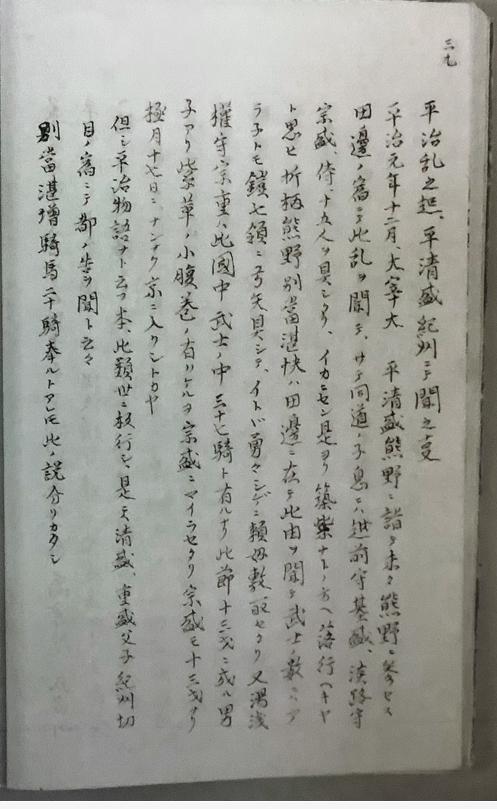 三九
平治乱之起、平清盛紀州ニテ聞之事
平治元年十二月、大宰大　平清盛熊野ニ詣テ未タ熊野ニ参セス
田邊ノ宿ニテ此乱ヲ聞テ、サテ同道ノ子息ニハ越前守基盛、淡路守
宗盛、侍十五人ヲ具シタリ、イカニセン是ヨリ築紫ナトノ方ヘ落行ヘキヤ
ト思ヒ折柄熊野別當湛快ハ田邊ニ在テ此由ヲ聞テ武士ノ数ニハア
ラ子トモ鎧七領ニ弓矢具シテ、イト勇々シゲニ頼母敷取セタリ又湯浅
権守宗重ハ此國中武士ノ中三十七騎ト有ルナリ此節十三戈ニ成ル男
子アリ紫革ノ小腹巻ノ有リケルヲ宗盛ニマイラセタリ宗盛モ十三戈ナリ
極月十七日ニナンナク京ニ入クントカヤ
但シ平治物語ナト云フ本、此類世ニ板行シ、是ニ清盛、重盛父子紀州切
目ノ宿ニテ都ノ告ヲ聞ト云々
別當湛増騎馬二十騎奉ルトアレモ此ノ説分リカタシ